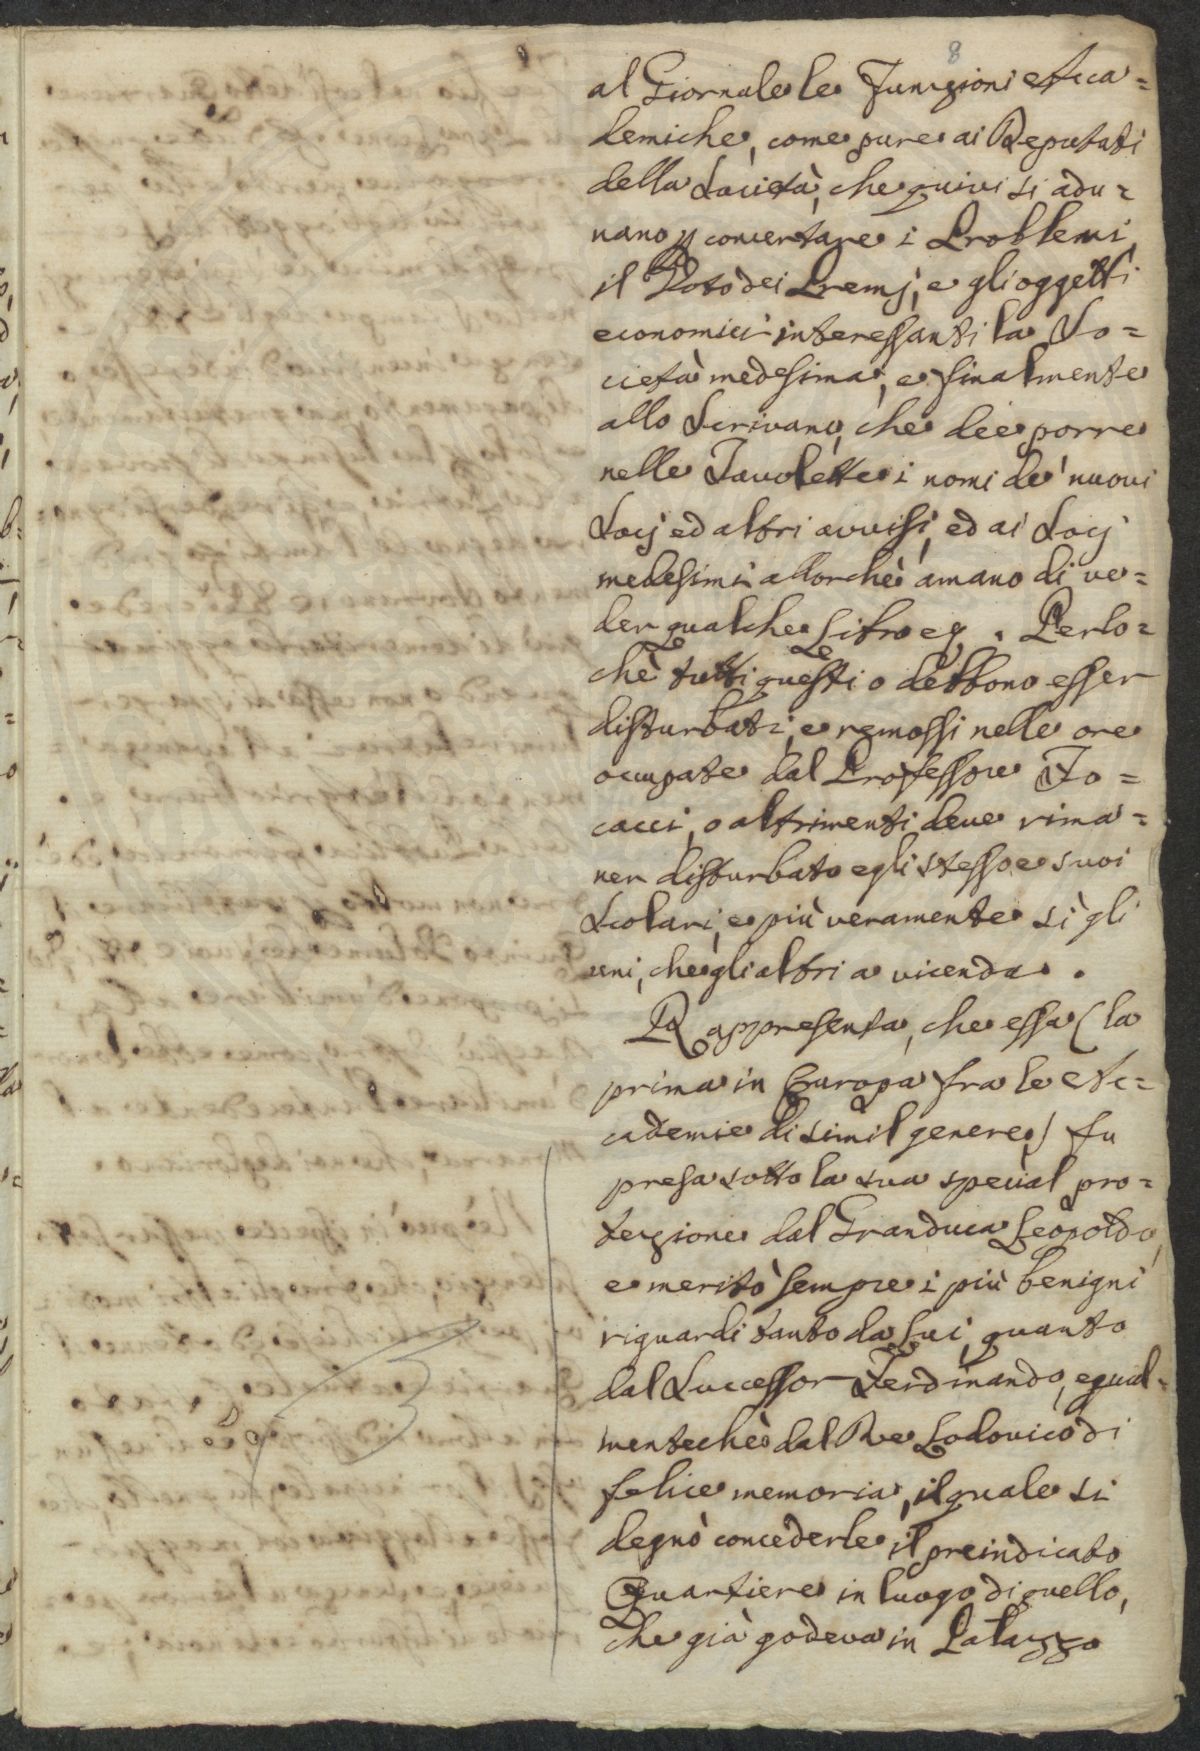 8
al Giornale le Funzioni Acca=
demiche, come pure ai Deputati
della Società, che quivi si adu=
nano p concertare i Problemi,
il Voto dei Premj, e gli oggetti
economici interessanti la So=
cietà medesima, e finalmente
allo Scrivano, che dee porre
nelle Tavolette i nomi de' nuovi
Socj ed altri avvisi, ed ai Socj
medesimi allorchè amano di ve=
der qualche Libro eç. Perlo=
chè tutti questi o debbono esser
disturbati, e remossi nelle ore
occupate dal Professore Fo=
cacci, o altrimenti deve rima=
ner disturbato egli stesso e suoi
Scolari, e più veramente sì gli
uni, che gli altri a vicenda.
Rappresenta, che essa (la
prima in Europa fra le Ac=
cademie di simil genere) fu
presa sotto la sua special pro=
tezione dal Granduca Leopoldo,
e meritò sempre i più benigni
riguardi tanto da Lui, quanto
dal Successor Ferdinando, egual=
mentechè dal Re Lodovico di
felice memoria, il quale si
degnò concederle il preindicato
Quartiere in luogo di quello,
che già godeva in Palazzo